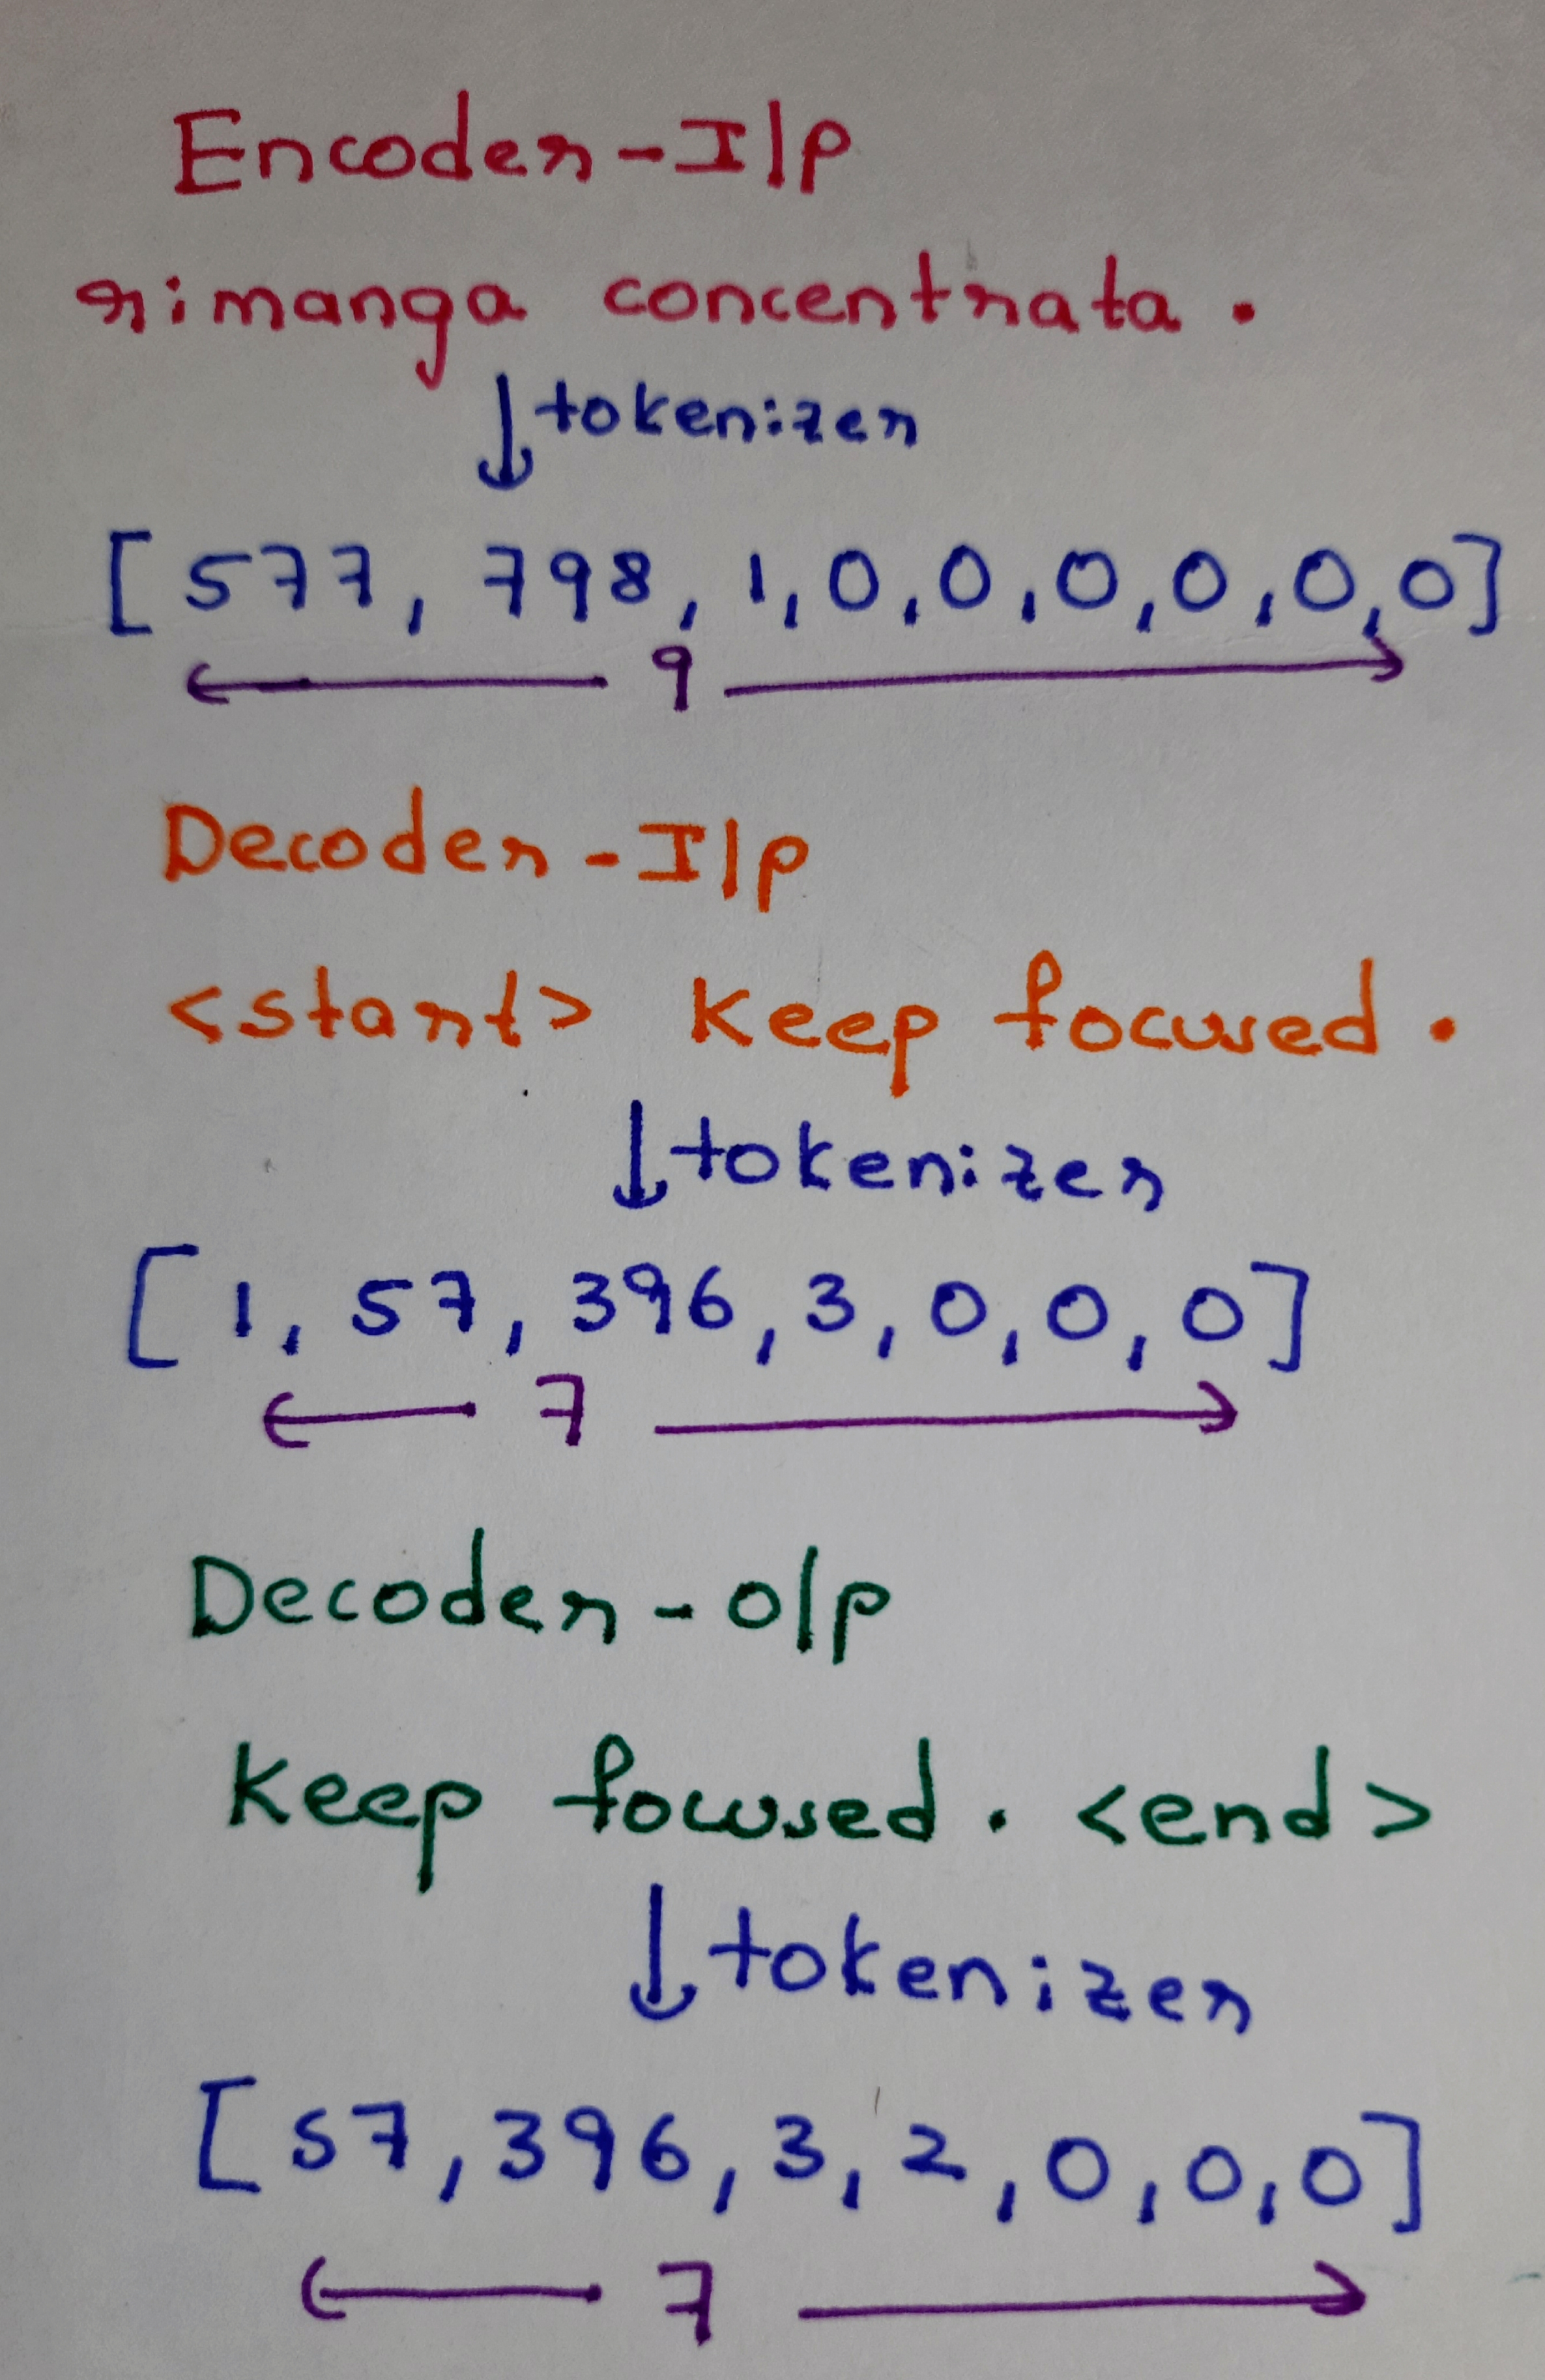 Encoder-I/p
rimanga concentrata.
↓ tokenizer
[577, 798, 1, 0, 0, 0, 0, 0, 0]
9
Decoder-I/p
<start> Keep focused.
↓ tokenizer
[1, 57, 396, 3, 0, 0, 0]
7
Decoder-o/p
Keep focused. <end>
↓ tokenizer
[57, 396, 3, 2, 0, 0, 0]
7